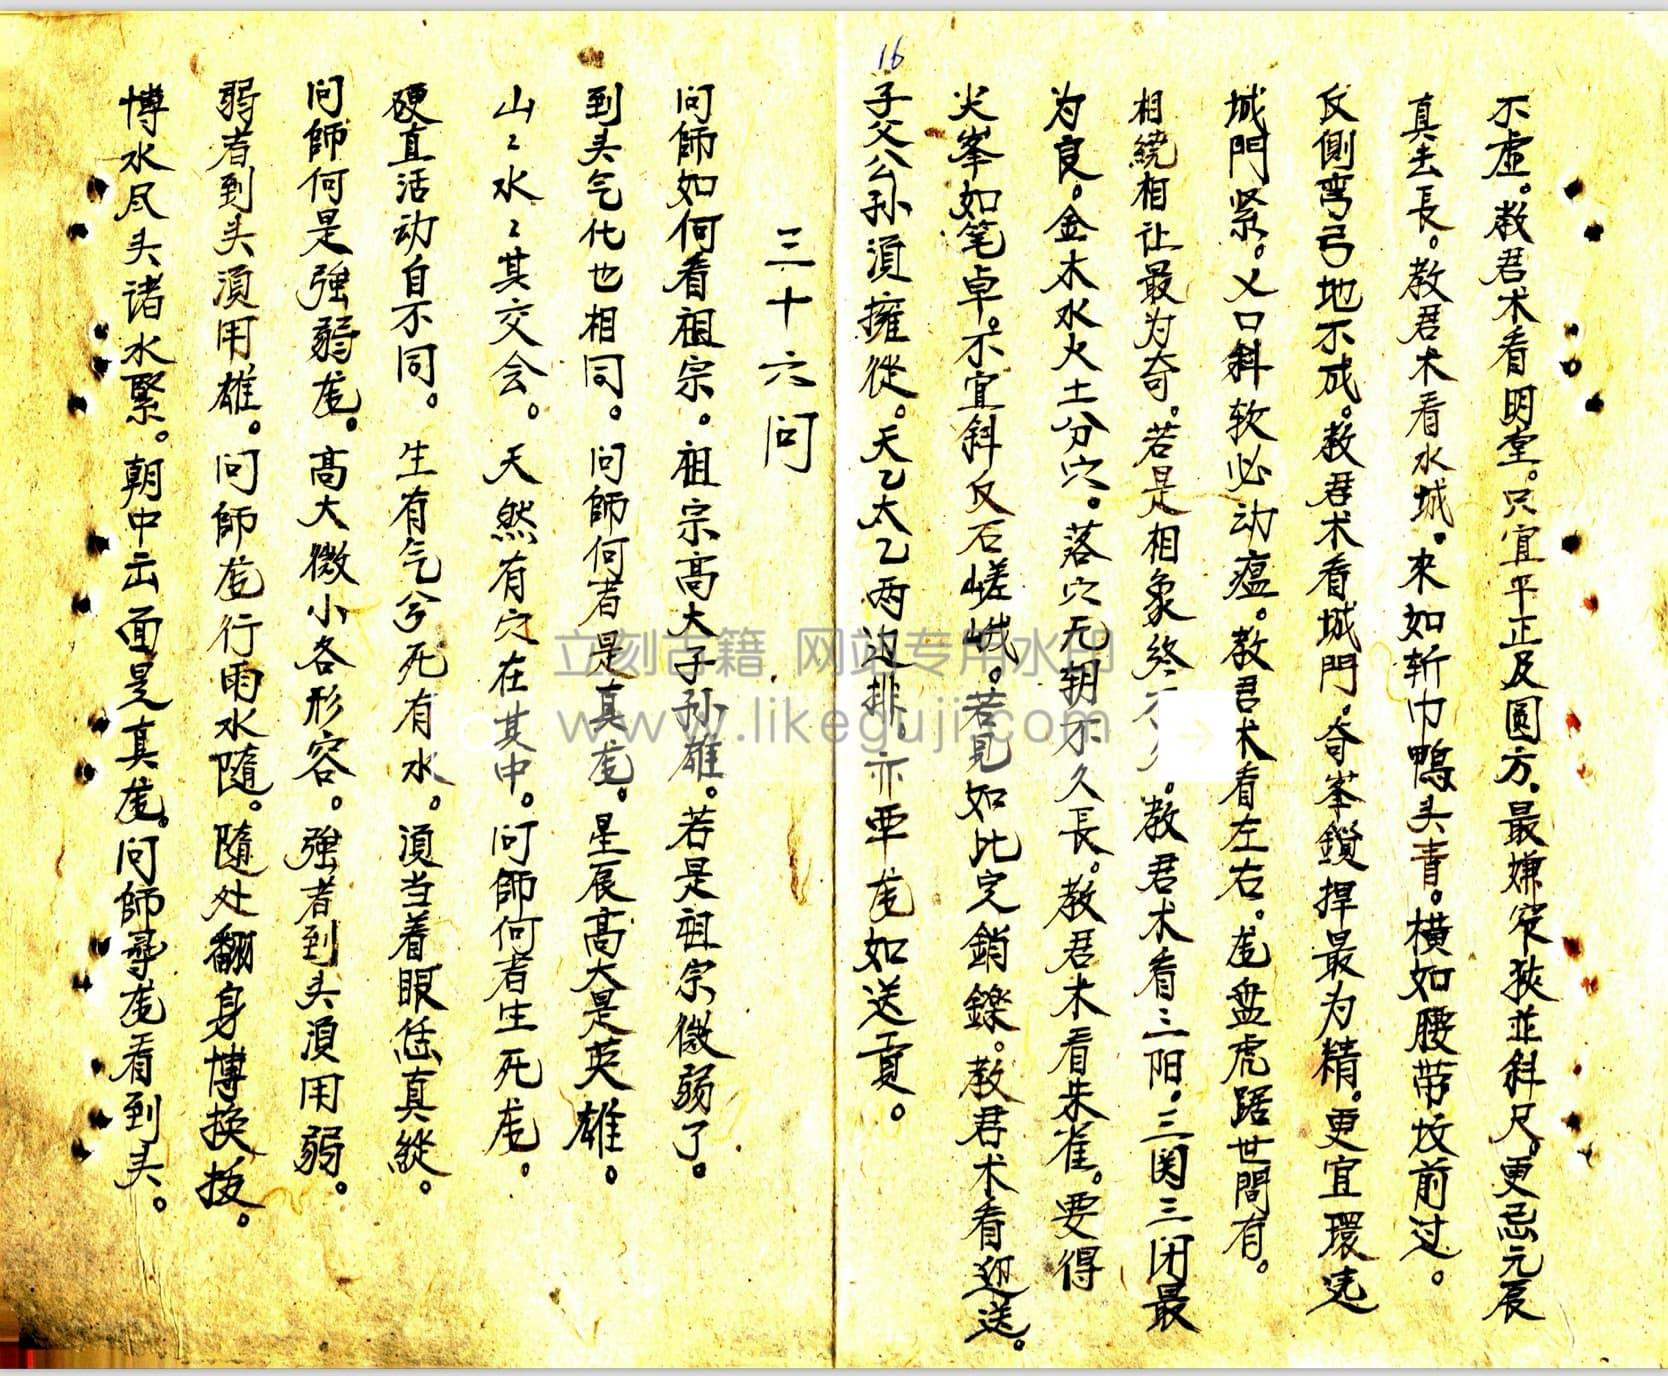 16
不虚。教君术看明堂。只宜平正及圆方。最嫌窄狭並斜尺。更忌元辰
真去長。教君术看水城。來如斩巾鴨头青。横如腰带坟前过。
反側弯弓地不成。教君术看城門。奇峯鎖捍最为精。更宜環
城門紧。乂口斜软必动瘟。教君术看左右。龙盘虎踞世間有。
相繞相让最为奇。若是相象終不。教君术看三阳。三関三闭最
为良。金木水火土分穴。落穴无朝不久長。教君术看朱雀。要得
尖峯如笔卓。不宜斜反石嵯峨。若見如比定銷鑠。教君术看迎送。
子父公孙湏擁從。天乙太乙两边排。亦要龙如送貢。
三十六问
问師如何看祖宗。祖宗高大子孙雄。若是祖宗微弱了。
到头气化也相同。问師何者是真龙。星辰高大是英雄。
山〻水〻其交会。天然有穴在其中。问師何者生死龙。
硬直活动自不同。生有气兮死有水。湏当着眼恁真縱。
问師何是強弱龙。高大微小各形容。強者到头湏用弱。
弱者到头湏用雄。问師龙行雨水隨。隨处翻身博换扳。
博水尽头诸水緊。朝中出面是真龙。问師尋龙看到头。
立刻古籍 网站专用水印
www.likeguji.com